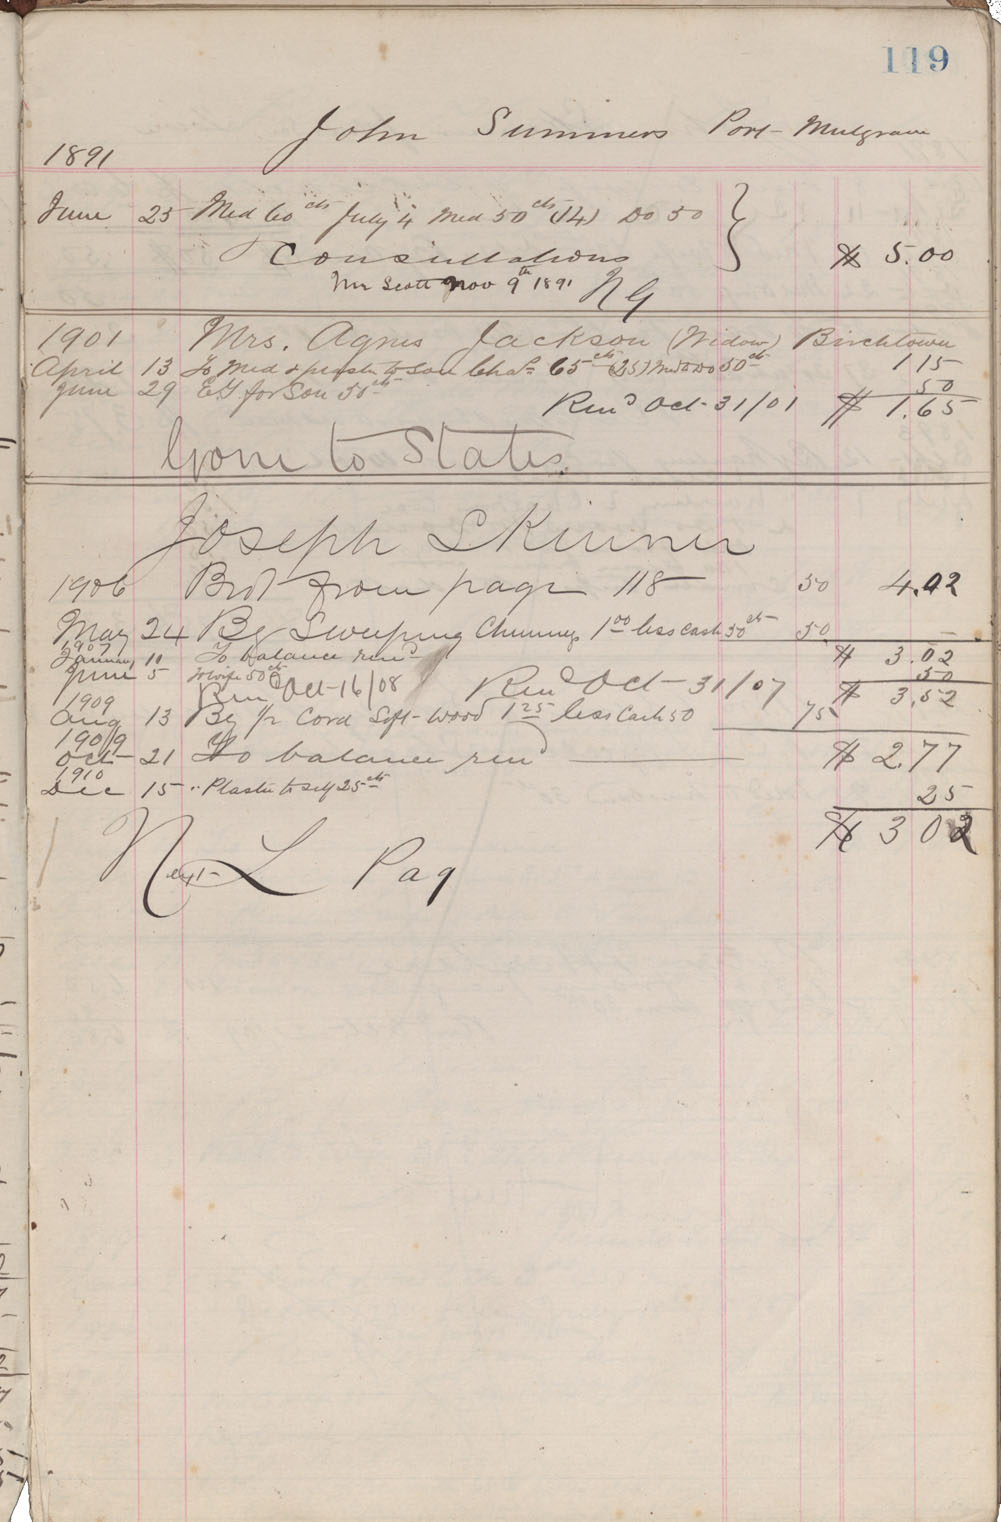 119
John Summers Port Mulgrave
1891
June 25 Med 60 cts July 4 Med 50 cts (14) Do 50
Consultations $ 5.00
Mr Scott Nov 9th 1891 N G
1901 Mrs. Agnes Jackson (Widow) Birchtown
April 13 To Med & plaster to son Chas 65 cts (25) Med to Do 50 cts 1 15
June 29 for Son 50 cts 50
Rend Oct 31/01 $ 1.65
Gone to States
Joseph Skinner
1906 Brot from page 118 50 4.02
May 24 By Sweeping Chimney 1 00 less Cash 50 cts 50 —
1907
January 10 To balance rend $ 3.02
June 5 To wife 50 cts 50
Rend Oct 16/08 Rend Oct 31/07 $ 3.52
1909
Aug 13 By Cord Soft Wood 1 25 less Cash 50 75
1909
Oct 21 To balance rend $ 2 77
1910
Dec 15 " Plaster to self 25 cts 25
$ 3 02
Next L Pag